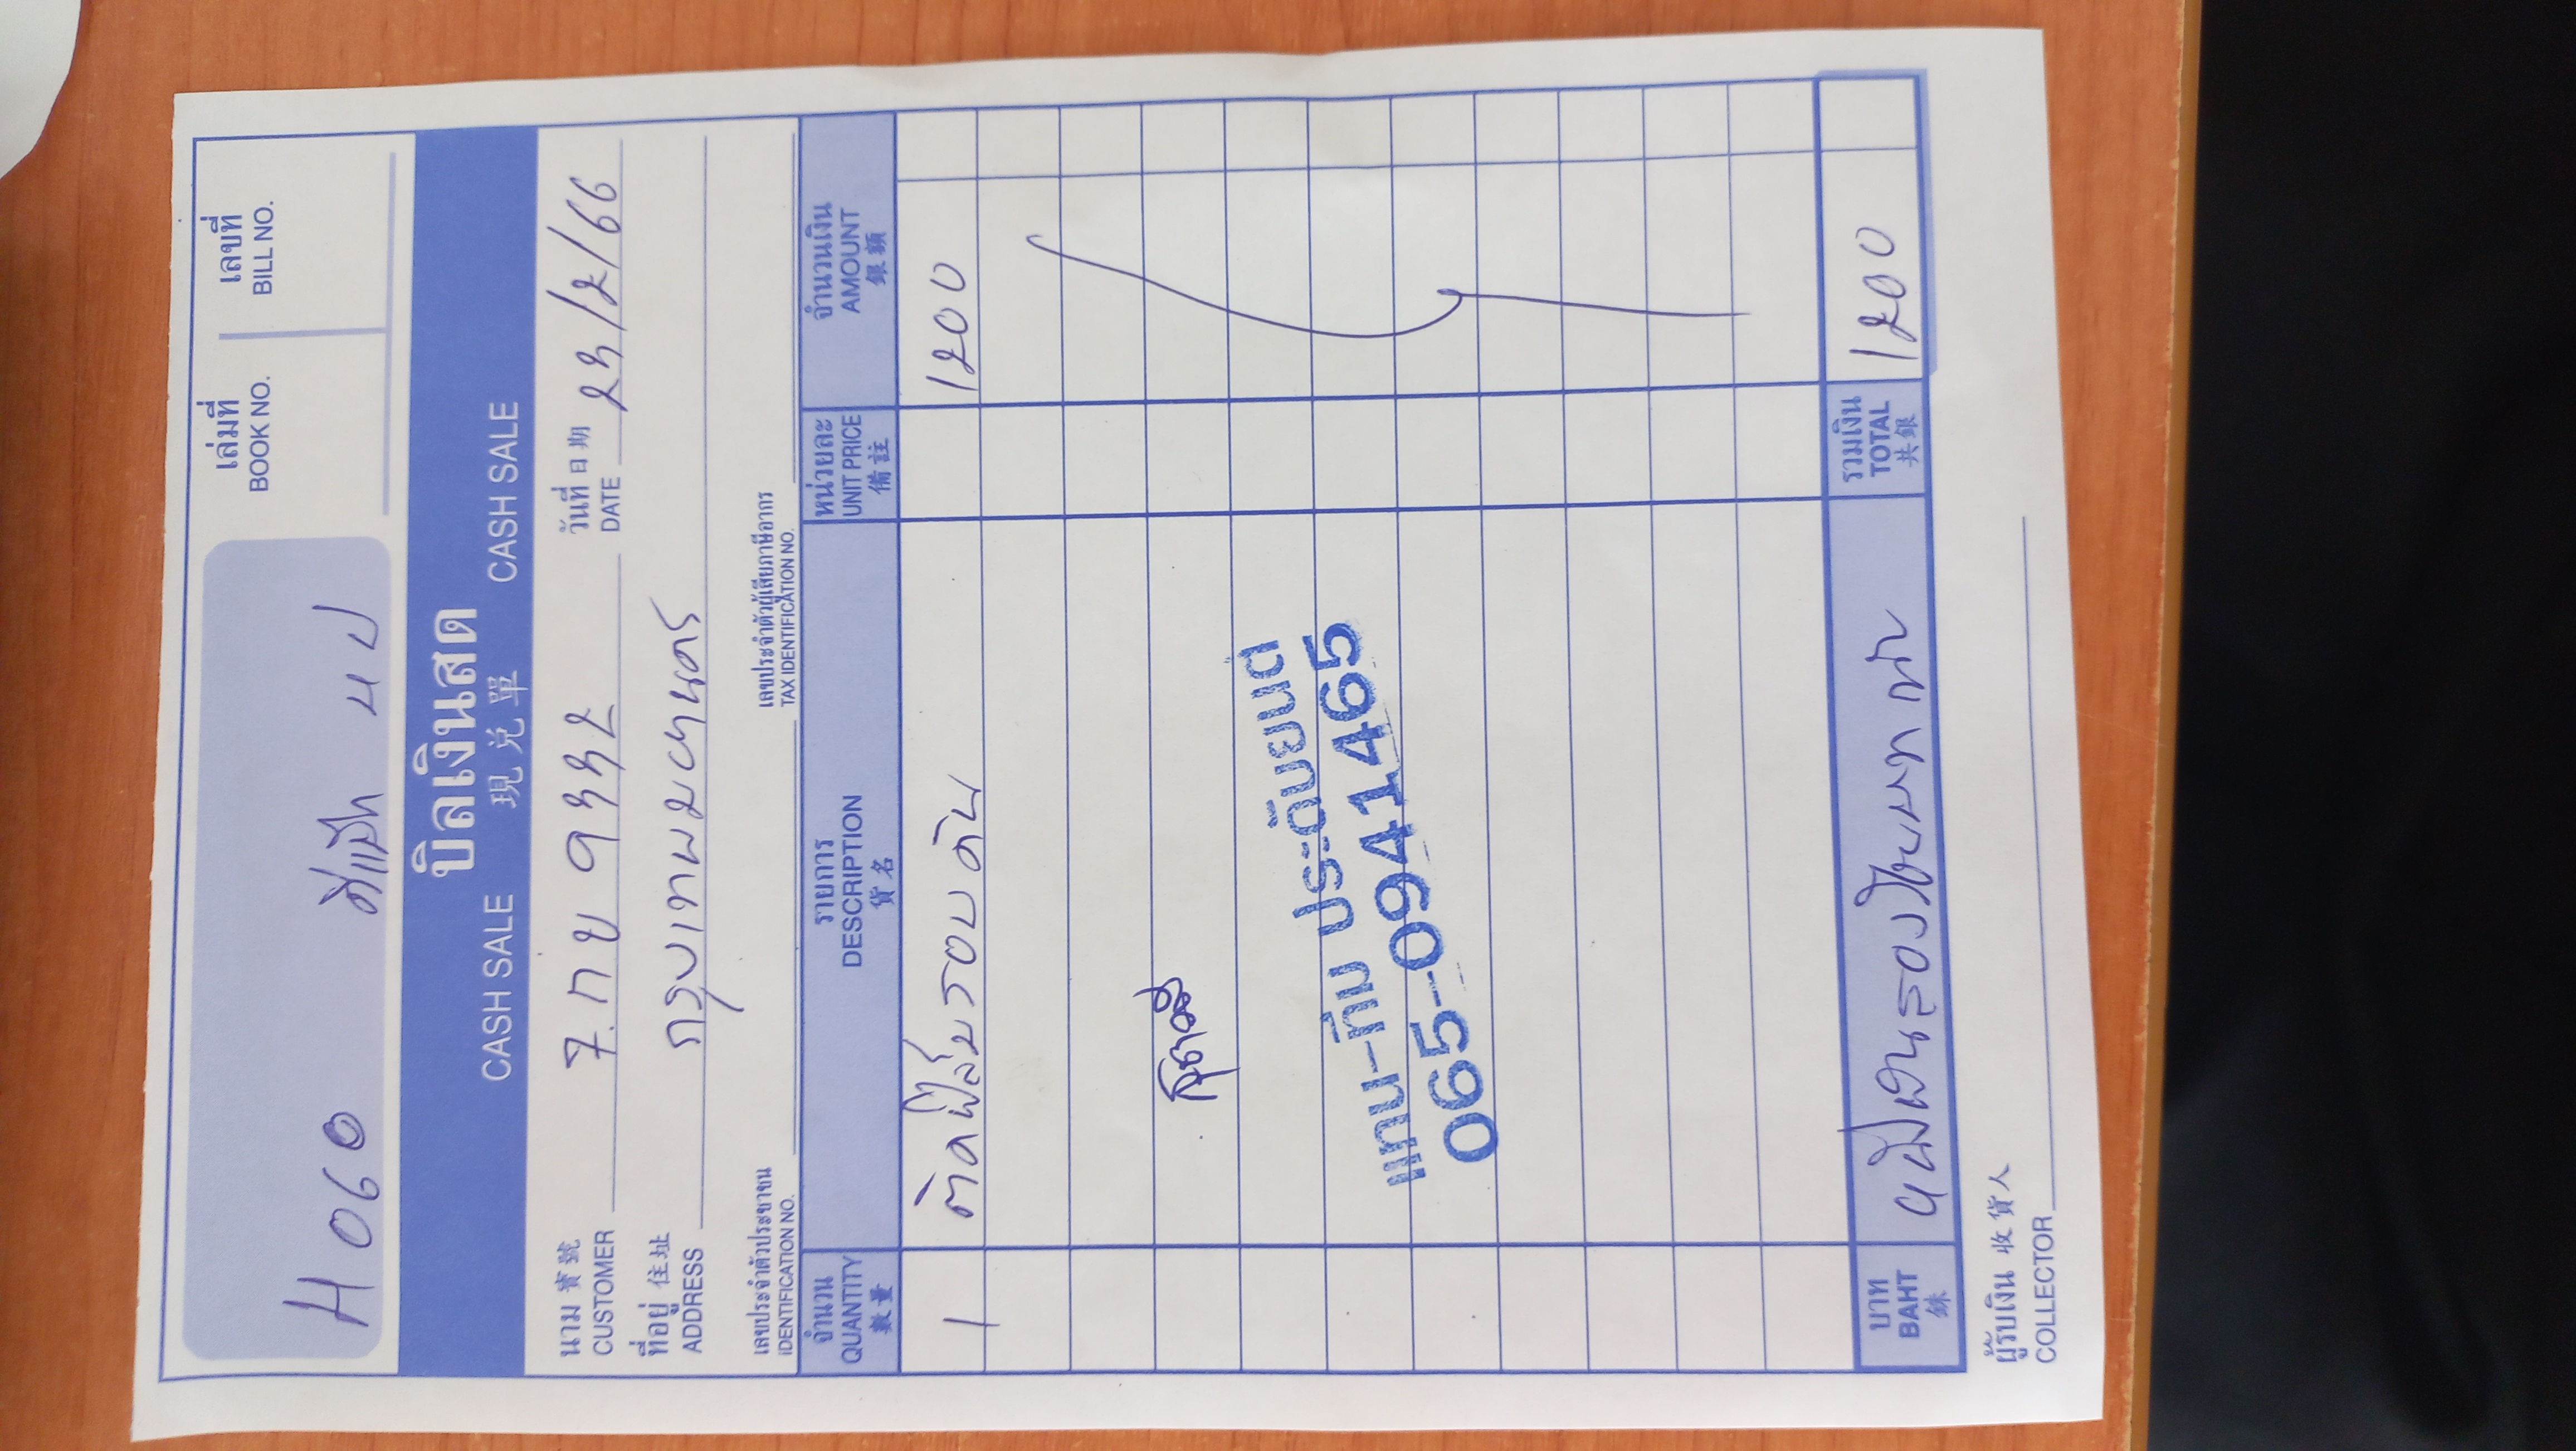 H 060 สีแป๊ก นป
เล่มที่ เลขที่
BOOK NO. BILL NO.
บิลเงินสด
CASH SALE 現兌單 CASH SALE
นาม 寳號 7 กข 9332 วันที่ 日期 23/2/66
CUSTOMER DATE
ที่อยู่ 住址 กรุงเทพมหานคร
ADDRESS
เลขประจำตัวประชาชน เลขประจำตัวผู้เสียภาษีอากร
IDENTIFICATION NO. TAX IDENTIFICATION NO.
จำนวน รายการ หน่วยละ จำนวนเงิน
QUANTITY DESCRIPTION UNIT PRICE AMOUNT
數量 貨名 備註 銀額
1 ติดฟิล์มรอบคัน 1200
แทน-ทิม ประดับยนต
065-0941465
บาท หนึ่งพันสองร้อยบาท รวมเงิน 1200
BAHT TOTAL
銖 共銀
ผู้รับเงิน 收貨人
COLLECTOR